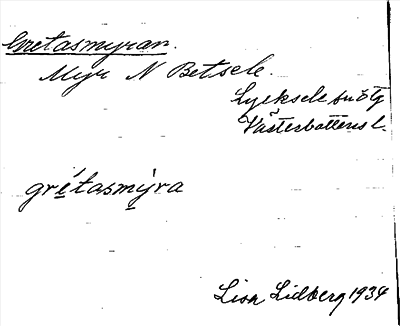 Gretasmyran.
Myr N Betsele.
Lycksele sn ö tg
Västerbottens l.
grétasmýra
Lisa Lidberg 1934